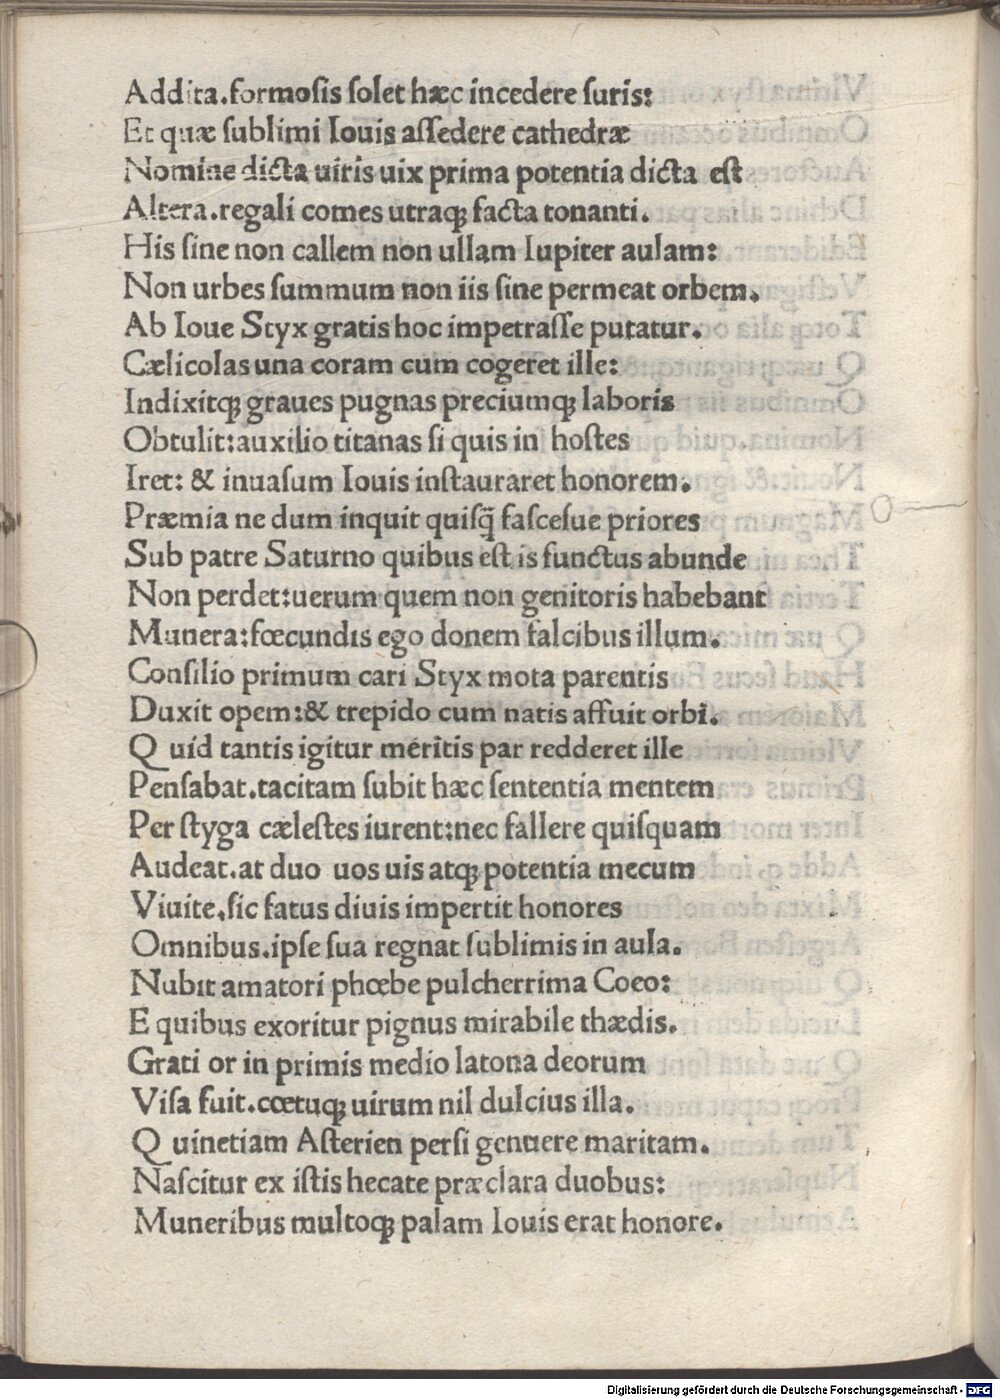 Addita.formosis solet hæc incedere suris:
Et quæ sublimi Iouis assedere cathedræ
Nomine dicta uiris uix prima potentia dicta est
Altera.regali comes utraqꝫ facta tonanti.
His sine non callem non ullam Iupiter aulam:
Non urbes summum non iis sine permeat orbem.
Ab Ioue Styx gratis hoc impetrasse putatur.
Cælicolas una coram cum cogeret ille:
Indixitqꝫ graues pugnas preciumqꝫ laboris
Obtulit:auxilio titanas si quis in hostes
Iret: & inuasum Iouis instauraret honorem.
Præmia ne dum inquit quisq̄ fascesue priores
Sub patre Saturno quibus est is functus abunde
Non perdet:uerum quem non genitoris habebant
Munera:fœcundis ego donem falcibus illum.
Consilio primum cari Styx mota parentis
Duxit opem:& trepido cum natis affuit orbi.
Q uid tantis igitur meritis par redderet ille
Pensabat.tacitam subit hæc sententia mentem
Per styga cælestes iurent:nec fallere quisquam
Audeat.at duo uos uis atqꝫ potentia mecum
Viuite.sic fatus diuis impertit honores
Omnibus.ipse sua regnat sublimis in aula.
Nubit amatori phœbe pulcherrima Coeo:
E quibus exoritur pignus mirabile thædis.
Grati or in primis medio latona deorum
Visa fuit.cœtuqꝫ uirum nil dulcius illa.
Q uinetiam Asterien persi genuere maritam.
Nascitur ex istis hecate præclara duobus:
Muneribus multoqꝫ palam Iouis erat honore.
Digitalisierung gefördert durch die Deutsche Forschungsgemeinschaft - DFG